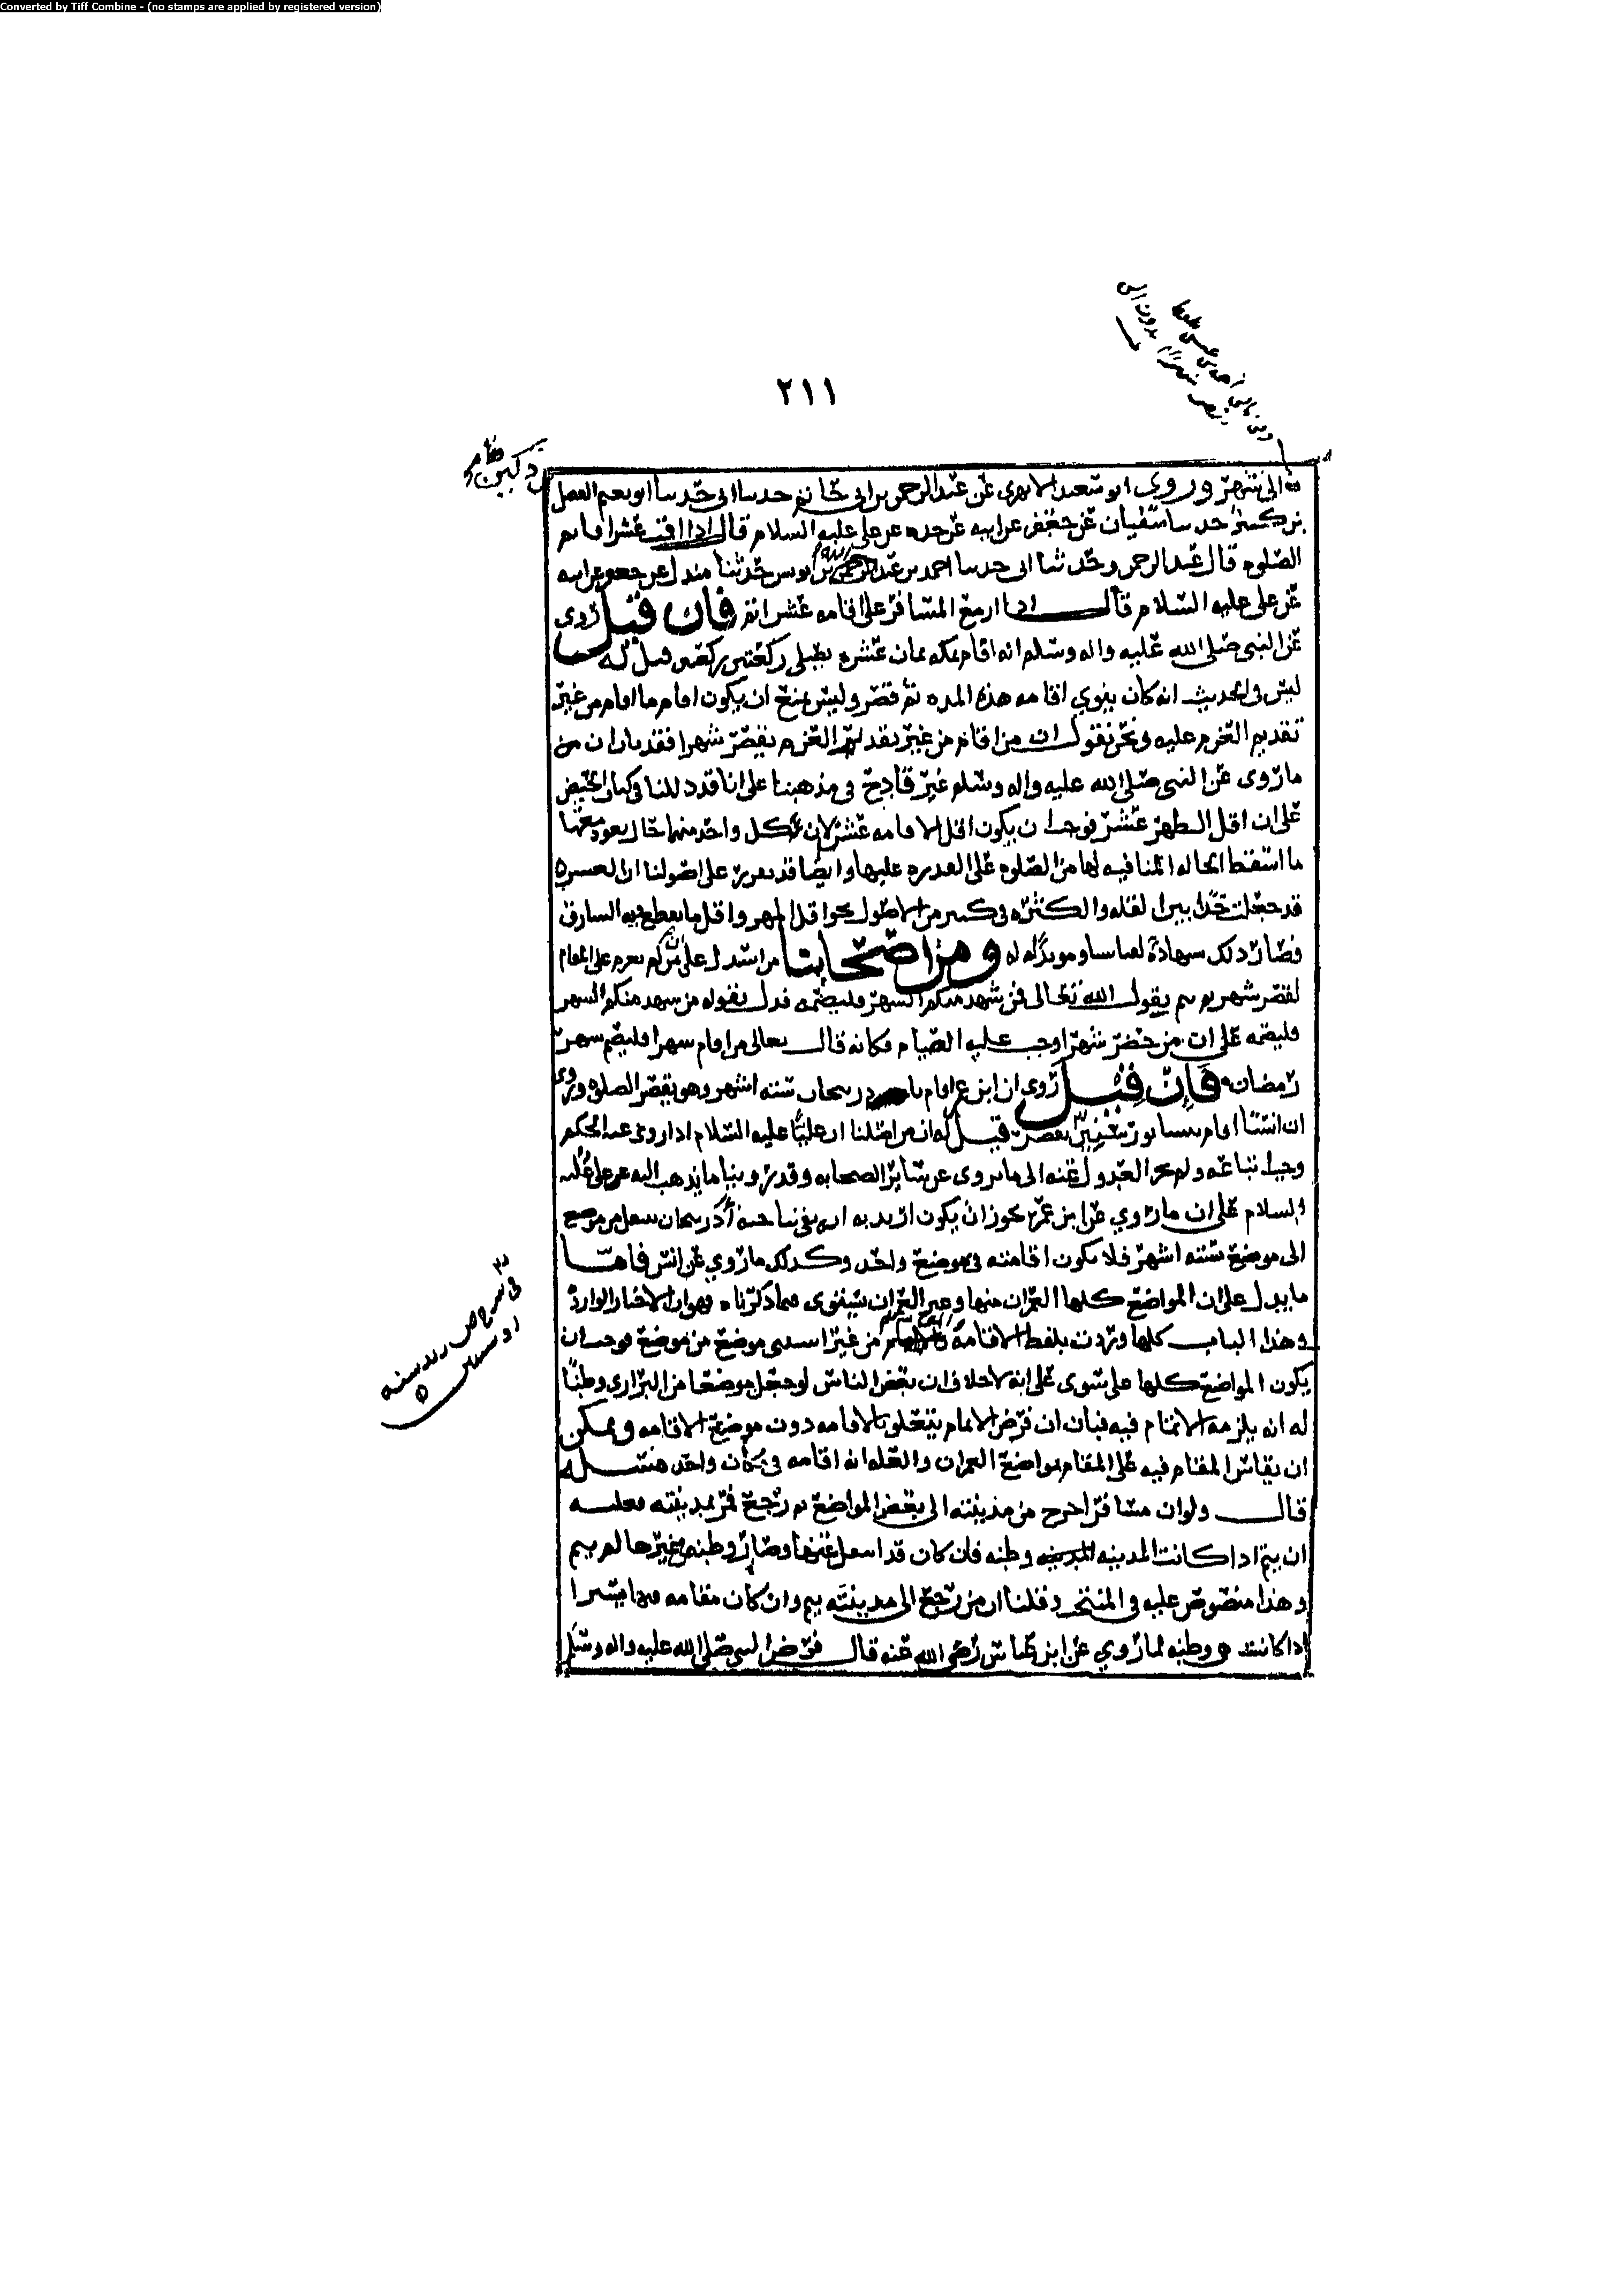 Converted by Tiff Combine - (no stamps are applied by registered version)
٢١١
الى شهر وروى ابو سعيد الابهرى عن عبد الرحمن بن ابى حاتم حدثنا ابى حدثنا ابو نعيم الفضل
بن حدثنا سفيان عن جعفر عن ابيه عن جده عن على عليه السلام قال اذا اقمت عشرا فاتم
الصلوه قال عبد الرحمن وحدثنا ابى حدثنا احمد بن عبد الله بن يونس حدثنا مندل عن جعفر عن ابيه
عن على عليه السلام قال اذا ازمع المسافر على اقامه عشر اتم فان قيل روى
عن النبى صلى الله عليه واله وسلم انه اقام بمكه ثمان عشره يصلى ركعتين ركعتين قيل له
ليس فى الحديث انه كان ينوي اقامه هذه المده ثم قصر وليس يمنع ان يكون اقام ما اقام من غير
تقديم العزم عليه ونحن نقول ان من اقام من غير تقديم العزم يقصر شهرا فقد بان ان من
ما روى عن النبى صلى الله عليه واله وسلم غير قادح فى مذهبنا على انا قد دللنا فى كتاب الحيض
على ان اقل الطهر عشر فوجب ان يكون اقل الاقامه عشر لان كل واحد منهما حال يعود معها
ما اسقط الحاله المنافيه لها من الصلوه على العدره عليها وايضا قد تقرر على اصولنا ان العشره
قد جعلت حدا بين القله والكثره فى كثير من الاصول نحو اقل المهر واقل ما يقطع فيه السارق
فصار ذلك شهادة لقياسنا ومويدا له ومن اصحابنا من استدل على ان من لم يعزم على المقام
لقصر شهر ثم يتم بقول الله تعالى فمن شهد منكم الشهر فليصمه فدل بقوله من شهد منكم الشهر
فليصمه على ان من حضر شهرا وجب عليه الصيام فكانه قال تعالى من اقام شهرا فليصم شهر
رمضان فان قيل روى ان ابن عمر اقام باذربيجان ستة اشهر وهو يقصر الصلوه وروى
ان انسا اقام بنيسابور سنتين يقصر قيل له ان من اصلنا ان عليا عليه السلام اذا روى عنه الحكم
وجب اتباعه ولم يجز العدول عنه الى ما يروى عن سائر الصحابه وقد روينا ما يذهب اليه عن على عليه
السلام على ان ما روي عن ابن عمر يجوز ان يكون اريد به انه بقى بناحية أذربيجان ينتقل من موضع
الى موضع ستة اشهر فلا يكون اقامته فى موضع واحد وكذلك ما روي عن انس فاما
ما يدل على ان المواضع كلها العمران منها وغير العمران يستوى فيما ذكرناه فهو ان الاخبار الواردة
فى هذا الباب كلها وردت بلفظ الاقامة من غير استثنى موضع من موضع فوجب ان
يكون المواضع كلها على سوى على انه لا خلاف ان بعض الناس لو جعل موضعا من البرارى وطنا
له انه يلزمه الاتمام فيه فبان ان فرض الاتمام يتعلق بالاقامه دون موضع الاقامه ويمكن
ان يقاس المقام فيه على المقام بمواضع العمران والعله انه اقامه فى مكان واحد مسئله
قال ولو ان مسافرا خرج من مدينته الى بعض المواضع ثم رجع فمر بمدينته فعليه
ان يتم اذا كانت المدينه وطنه فان كان قد انتقل عنها وصار وطنه غيرها لم يتم
وهذا منصوص عليه فى المنتخب وقلنا ان من رجع الى مدينته يتم وان كان مقامه فيها يسيرا
اذا كانت هى وطنه لما روي عن ابن عباس رضى الله عنه قال فرض النبى صلى الله عليه واله وسلم